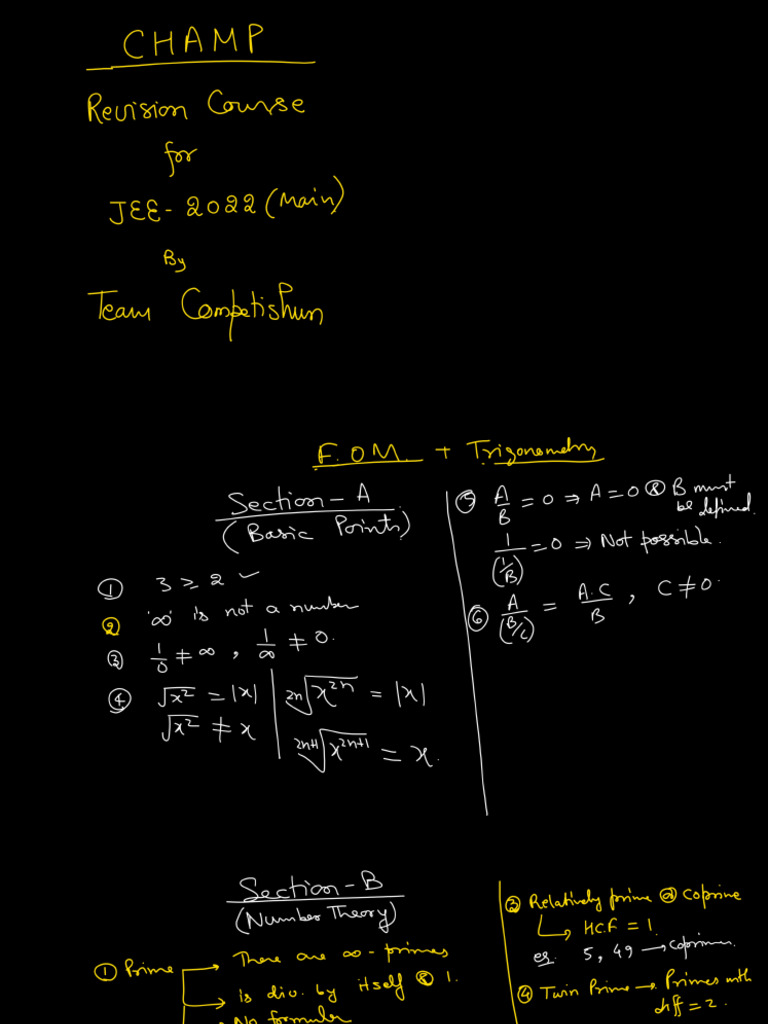 CHAMP
Revision Course
for
JEE-2022 (Main)
By
Team Competishun
F.O.M. + Trigonometry
Section-A
(Basic Points)
① 3 ≥ 2 ✓
② '∞' is not a number
③ 1/0 ≠ ∞ , 1/∞ ≠ 0.
④ √x² = |x|
√x² ≠ x
²ⁿ√x²ⁿ = |x|
²ⁿ⁺¹√x²ⁿ⁺¹ = x.
⑤ A/B = 0 ⇒ A = 0 & B must
be defined.
1/(1/B) = 0 ⇒ Not possible.
⑥ A/(B/C) = A.C/B , C ≠ 0.
Section-B
(Number Theory)
① Prime → There are ∞-primes
→ Is div. by itself & 1.
→ No formula
③ Relatively prime or Coprime
↳ HCF = 1.
eg. 5, 49 → Coprimes.
④ Twin Prime → Primes with
diff = 2.